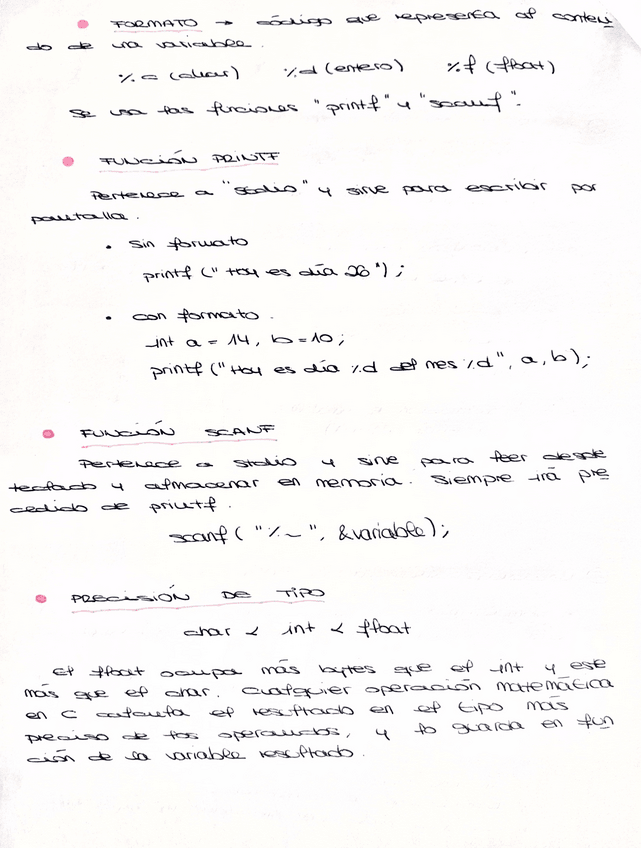 • FORMATO → código que representa al conteni
do de una variable.
%c (char) %d (entero) %f (float)
Se usa las funciones "printf" y "scanf".
• FUNCIÓN PRINTF
Pertenece a "stdio" y sirve para escribir por
pantalla.
• Sin formato
printf (" Hoy es día 26 ") ;
• Con formato.
int a = 14, b = 10;
printf (" Hoy es día %d del mes %d ", a, b);
• FUNCIÓN SCANF
Pertenece a stdio y sirve para leer desde
teclado y almacenar en memoria. Siempre irá pre
cedido de printf.
scanf ( "%~ ", &variable);
• PRECISIÓN DE TIPO
char < int < float
El float ocupa más bytes que el int y ese
más que el char. Cualquier operación matemática
en C calcula el resultado en el tipo más
preciso de los operandos, y lo guarda en fun
ción de la variable resultado.